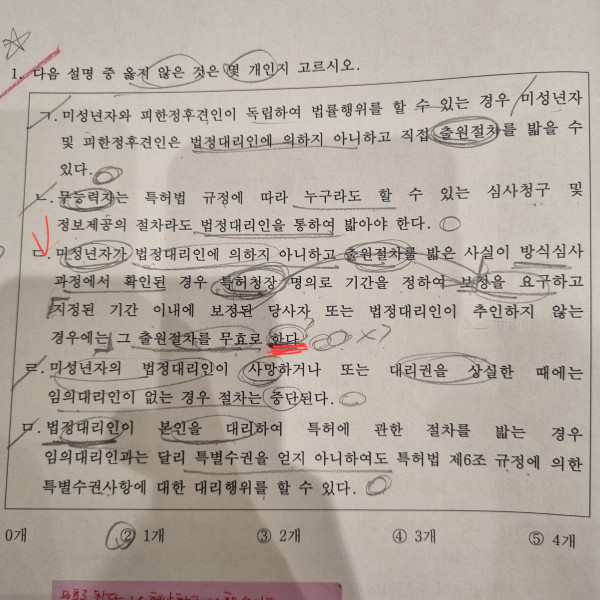 1. 다음 설명 중 옳지 않은 것은 몇 개인지 고르시오.
ㄱ. 미성년자와 피한정후견인이 독립하여 법률행위를 할 수 있는 경우 미성년자
및 피한정후견인은 법정대리인에 의하지 아니하고 직접 출원절차를 밟을 수
있다.
ㄴ. 무능력자는 특허법 규정에 따라 누구라도 할 수 있는 심사청구 및
정보제공의 절차라도 법정대리인을 통하여 밟아야 한다.
ㄷ. 미성년자가 법정대리인에 의하지 아니하고 출원절차를 밟은 사실이 방식심사
과정에서 확인된 경우 특허청장 명의로 기간을 정하여 보정을 요구하고
지정된 기간 이내에 보정된 당사자 또는 법정대리인이 추인하지 않는
경우에는 그 출원절차를 무효로 한다. X?
ㄹ. 미성년자의 법정대리인이 사망하거나 또는 대리권을 상실한 때에는
임의대리인이 없는 경우 절차는 중단된다.
ㅁ. 법정대리인이 본인을 대리하여 특허에 관한 절차를 밟는 경우
임의대리인과는 달리 특별수권을 얻지 아니하여도 특허법 제6조 규정에 의한
특별수권사항에 대한 대리행위를 할 수 있다.
0개 ② 1개 ③ 2개 ④ 3개 ⑤ 4개